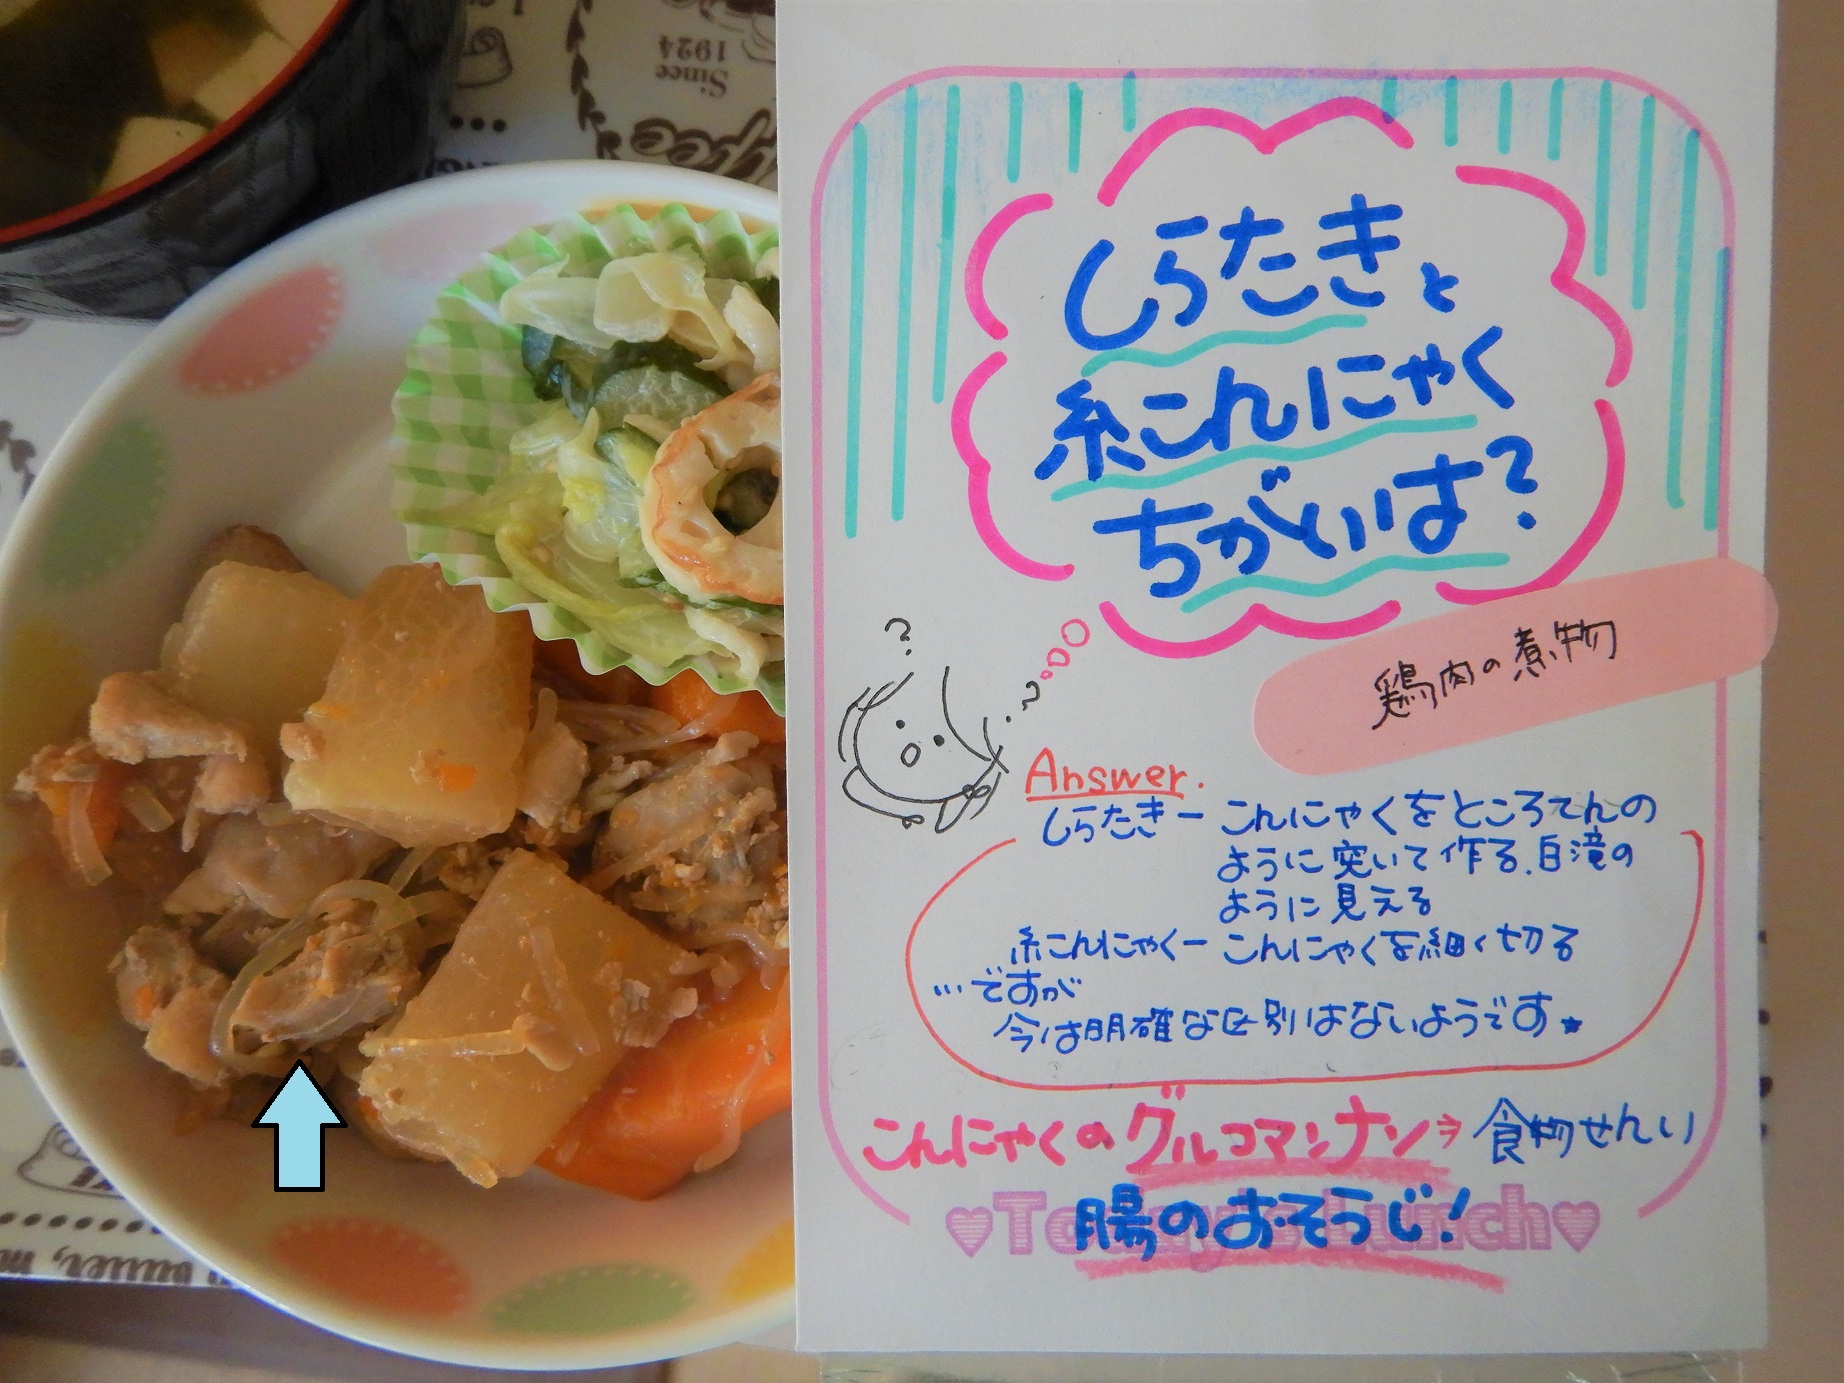 Since
1924
しらたきと
糸こんにゃく
ちがいは?
鶏肉の煮物
?
?
Answer.
しらたきー こんにゃくをところてんの
ように突いて作る.白滝の
ように見える
糸こんにゃくー こんにゃくを細く切る
…ですが
今は明確な区別はないようです★
こんにゃくのグルコマンナン⇒食物せんい
♥Today's Lunch♥
腸のおそうじ!